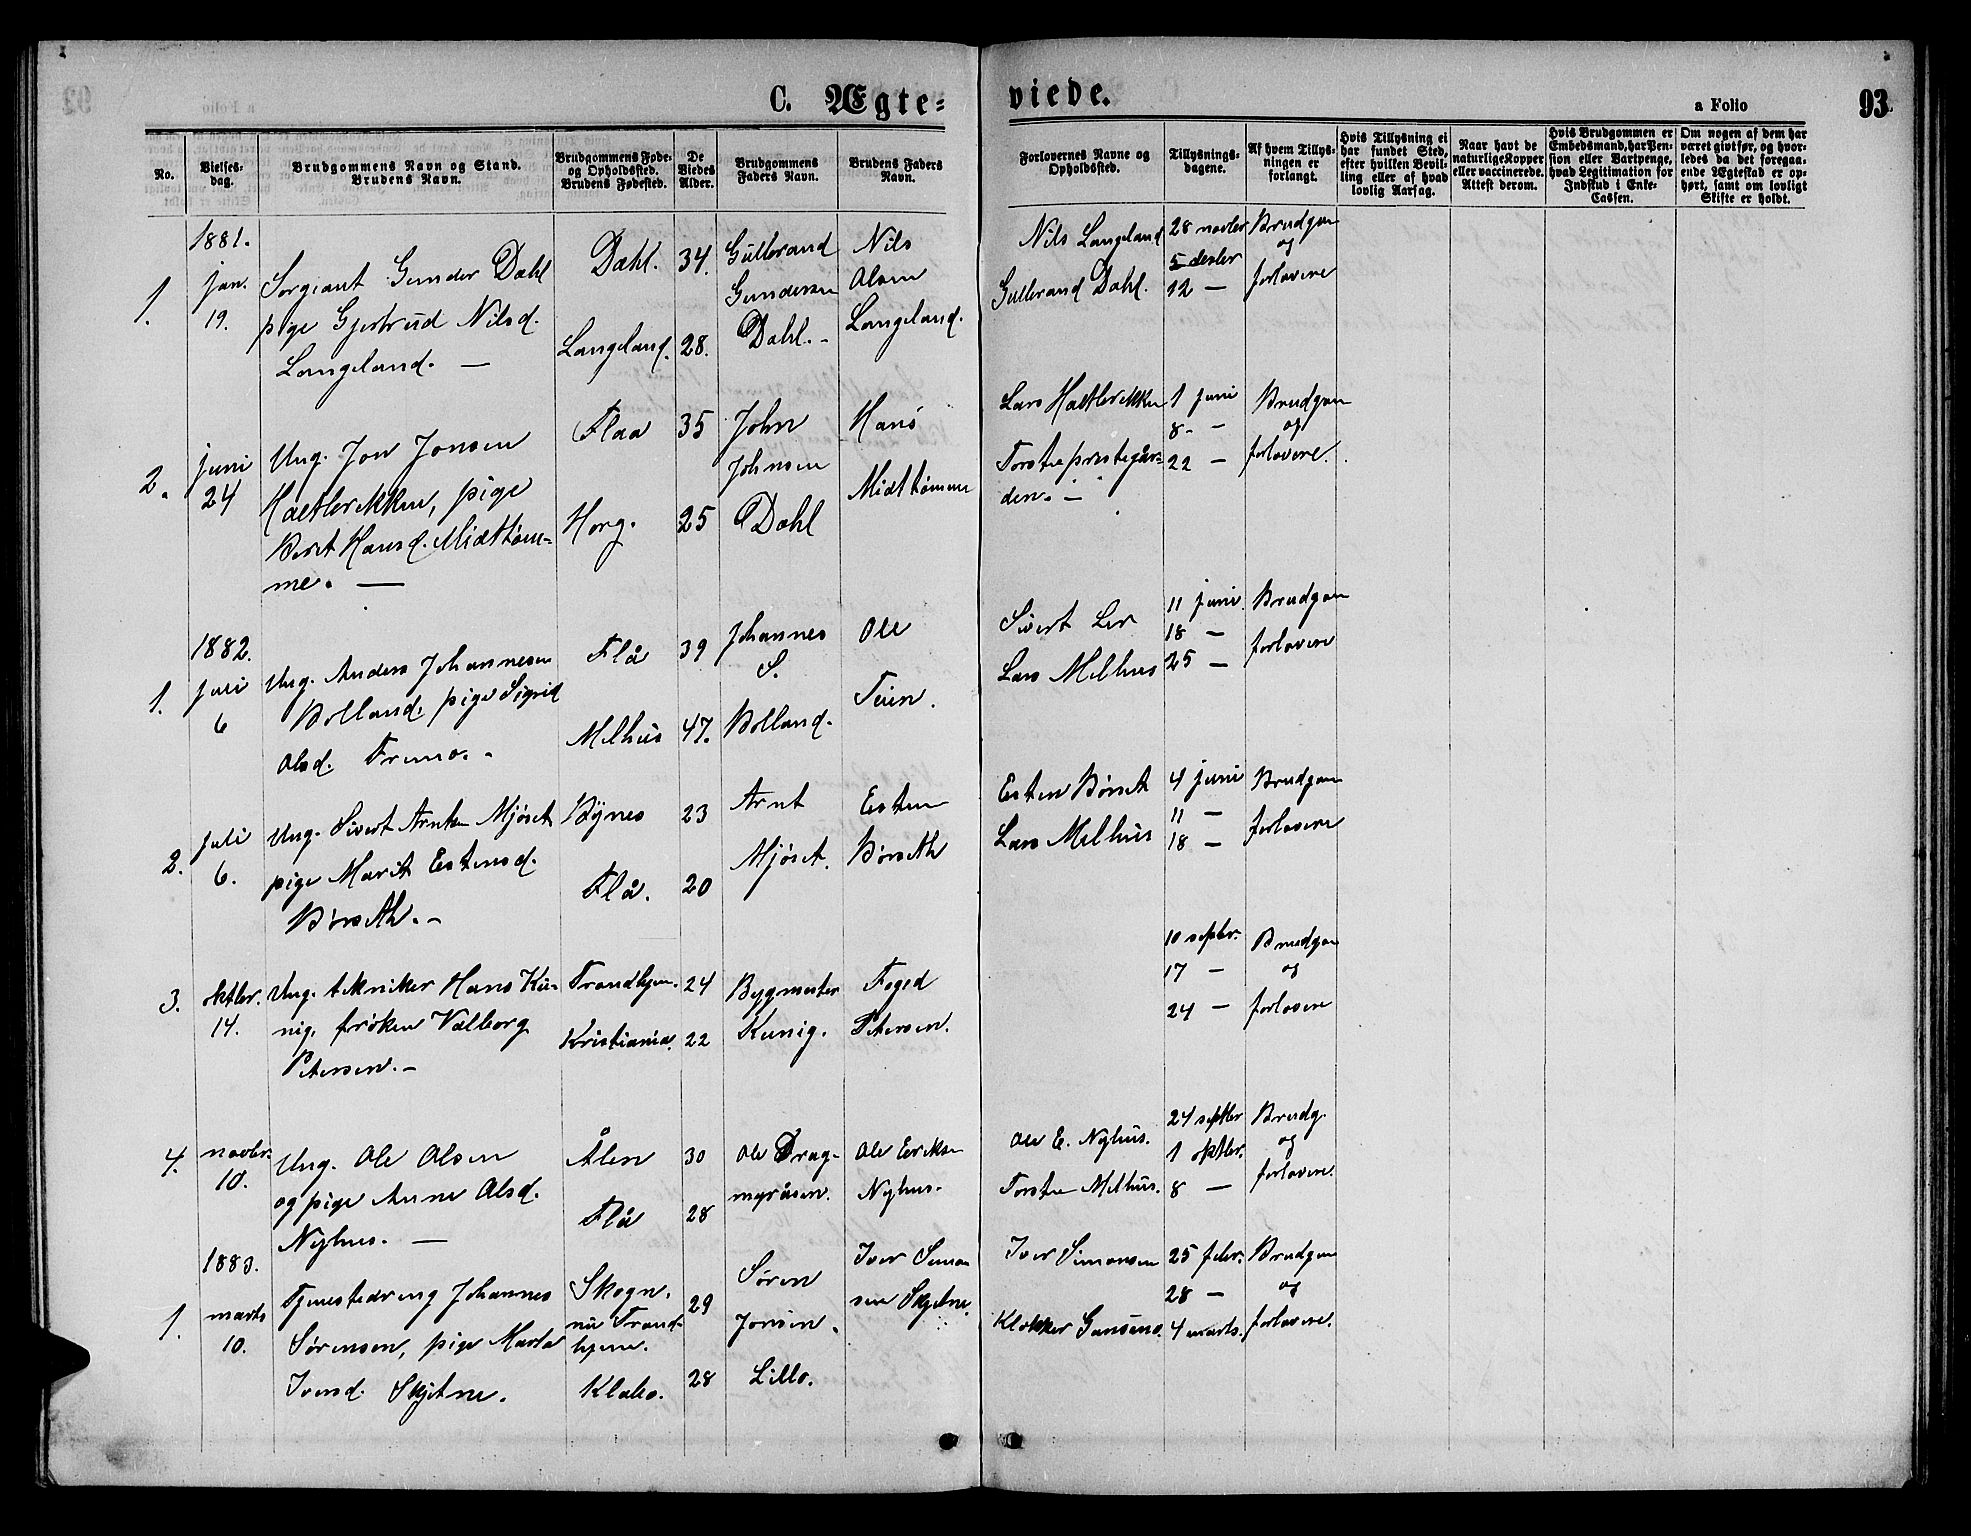 C. Ægte=
viede.
a Folio
93
No.
Vielses-
dag.
Brudgommens Navn og Stand.
Brudens Navn.
Brudgommens Føde-
og Opholdssted.
Brudens Fødested.
De
Viedes
Alder.
Brudgommens
Faders Navn.
Brudens Faders
Navn.
Forlovernes Navne og
Opholdsted.
Tillysnings-
dagene.
Af hvem Tillys-
ningen er
forlangt.
Hvis Tillysning ei
har fundet Sted,
efter hvilken Bevil-
ling eller af hvad
lovlig Aarsag.
Naar havt de
naturlige Kopper
eller vaccinerede.
Attest derom.
Hvis Brudgommen er
Embedsmand, har Pen-
sion eller Vartpenge,
hvad Legitimation for
Indskud i Enke-
Cassen.
Om nogen af dem har
været givt før, og hvor-
ledes da det foregaa-
ende Ægteskab er op-
hørt, samt om lovligt
Skifte er holdt.
1.
1881.
jan.
19.
Sergeant Gunder Dahl
pige Gjertrud Nilsd.
Langeland. —
Dahl.
Langeland.
34.
28.
Gulbrand
Gundersen
Dahl. -
Nils
Olsen
Langeland.
Nils Langeland
Gulbrand Dahl.
28 novber
5 desber
12 —
Brudgom
og
forlovere
2.
juni
24
Ung. Jon Jonsen
Haltbrekken, pige
Beret Hansd. Midttøm-
me. —
Flaa
Horg.
35
25
John
Johnsen
Dahl
Hans
Midttømme
Lars Haltbrekken
Torsten prestegår=
den. —
1 juni
8. -
22 —
Brudgom
og
forlovere.
1.
1882.
juli
6
Ung. Anders Johannesen
Bolland, pige Sigrid
Olsd. Fremo. -
Flå
Melhus
39
47.
Johannes
S.
Bolland.
Ole
Teien.
Sivert Ler
Lars Melhus
11 juni
18 —
25 —
Brudgom
forlovere
2.
juli
6.
Ung. Sivert Arntsen Mjøset
pige Marit Estensd.
Børseth. -
Bynes
Flå.
23
20
Arnt
Mjøset.
Esten
Børseth
Esten Børset
Lars Melhus
4 juni
11 —
18 —
Brudgom
forlovere
3.
oktbr.
14.
Ung. tekniker Hans Kü-
nig. frøken Valborg
Petersen. -
Trondhjem.
Kristiania.
24
22
Bygmester
Kunig.
Foged
Petersen.
10 septbr.
17 —
24 —
Brudgom
og
forlovere
4.
novbr.
10.
Ung. Ole Olsen
og pige Anne Olsd.
Nyhus. —
Ålen
Flå
30
28
Ole Drag-
myråsen.
Ole Eriksen
Nyhus.
Ole E. Nyhus.
Torsten Melhus.
24 septbr
1 oktbr.
8 —
Brudg.
og
forlovere.
1.
1883.
marts
10.
Tjenestedreng Johannes
Sørensen, pige Marta
Iversd. Skjetne.
Skogn.
nu Trond-
hjem.
Klæbo.
29
28
Søren
Jonsen.
Lillo.
Iver Simon
sen Skjetne.
Iver Simonsen
Klokker
25 febr.
28 —
4 marts.
Brudgom
og
forlovere.